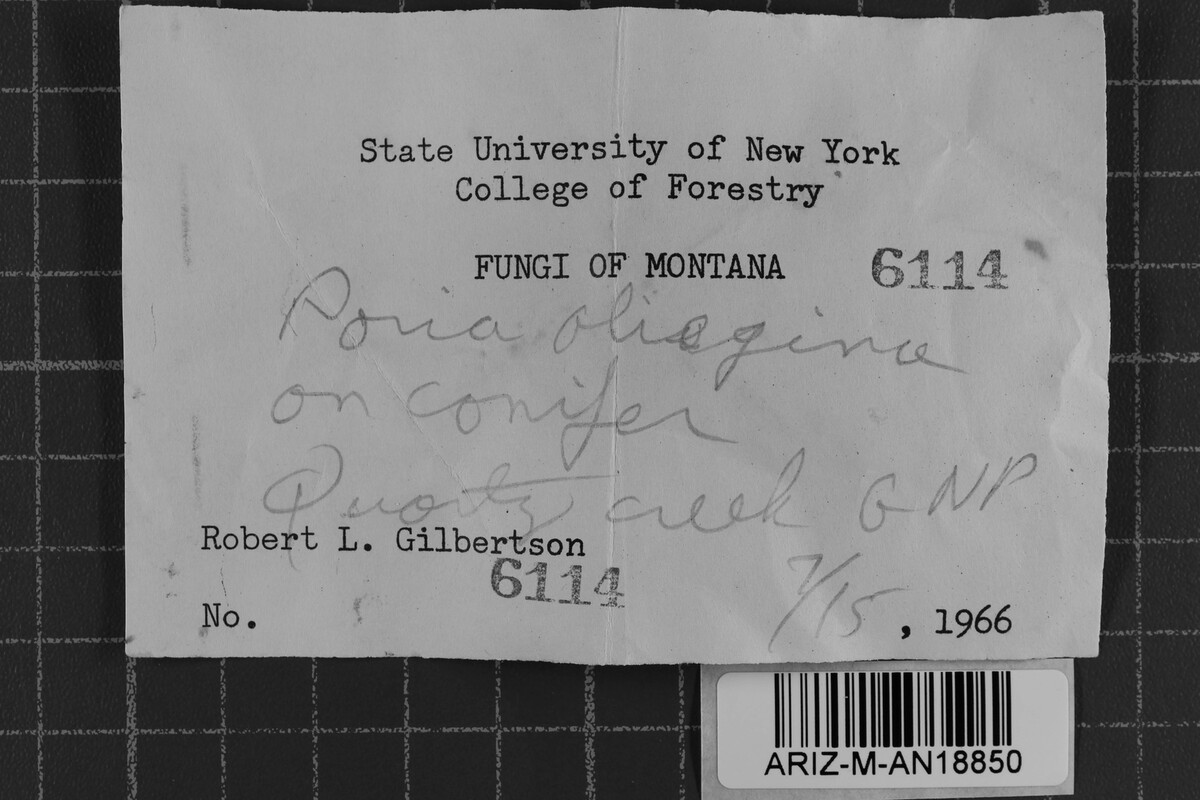 State University of New York
College of Forestry
FUNGI OF MONTANA 6114
Poria
on conifer
Quartz creek GNP
Robert L. Gilbertson
6114
No.
7/15, 1966
ARIZ-M-AN18850